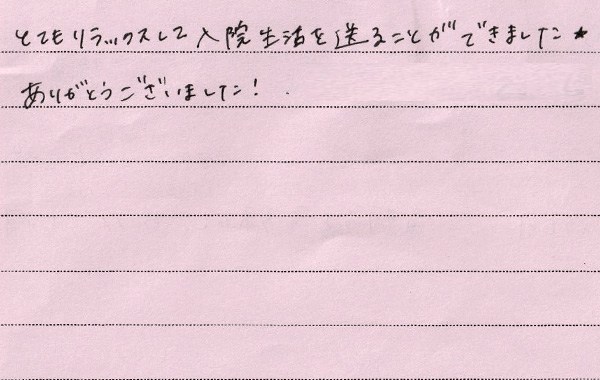 とてもリラックスして入院生活を送ることができました★
ありがとうございました!